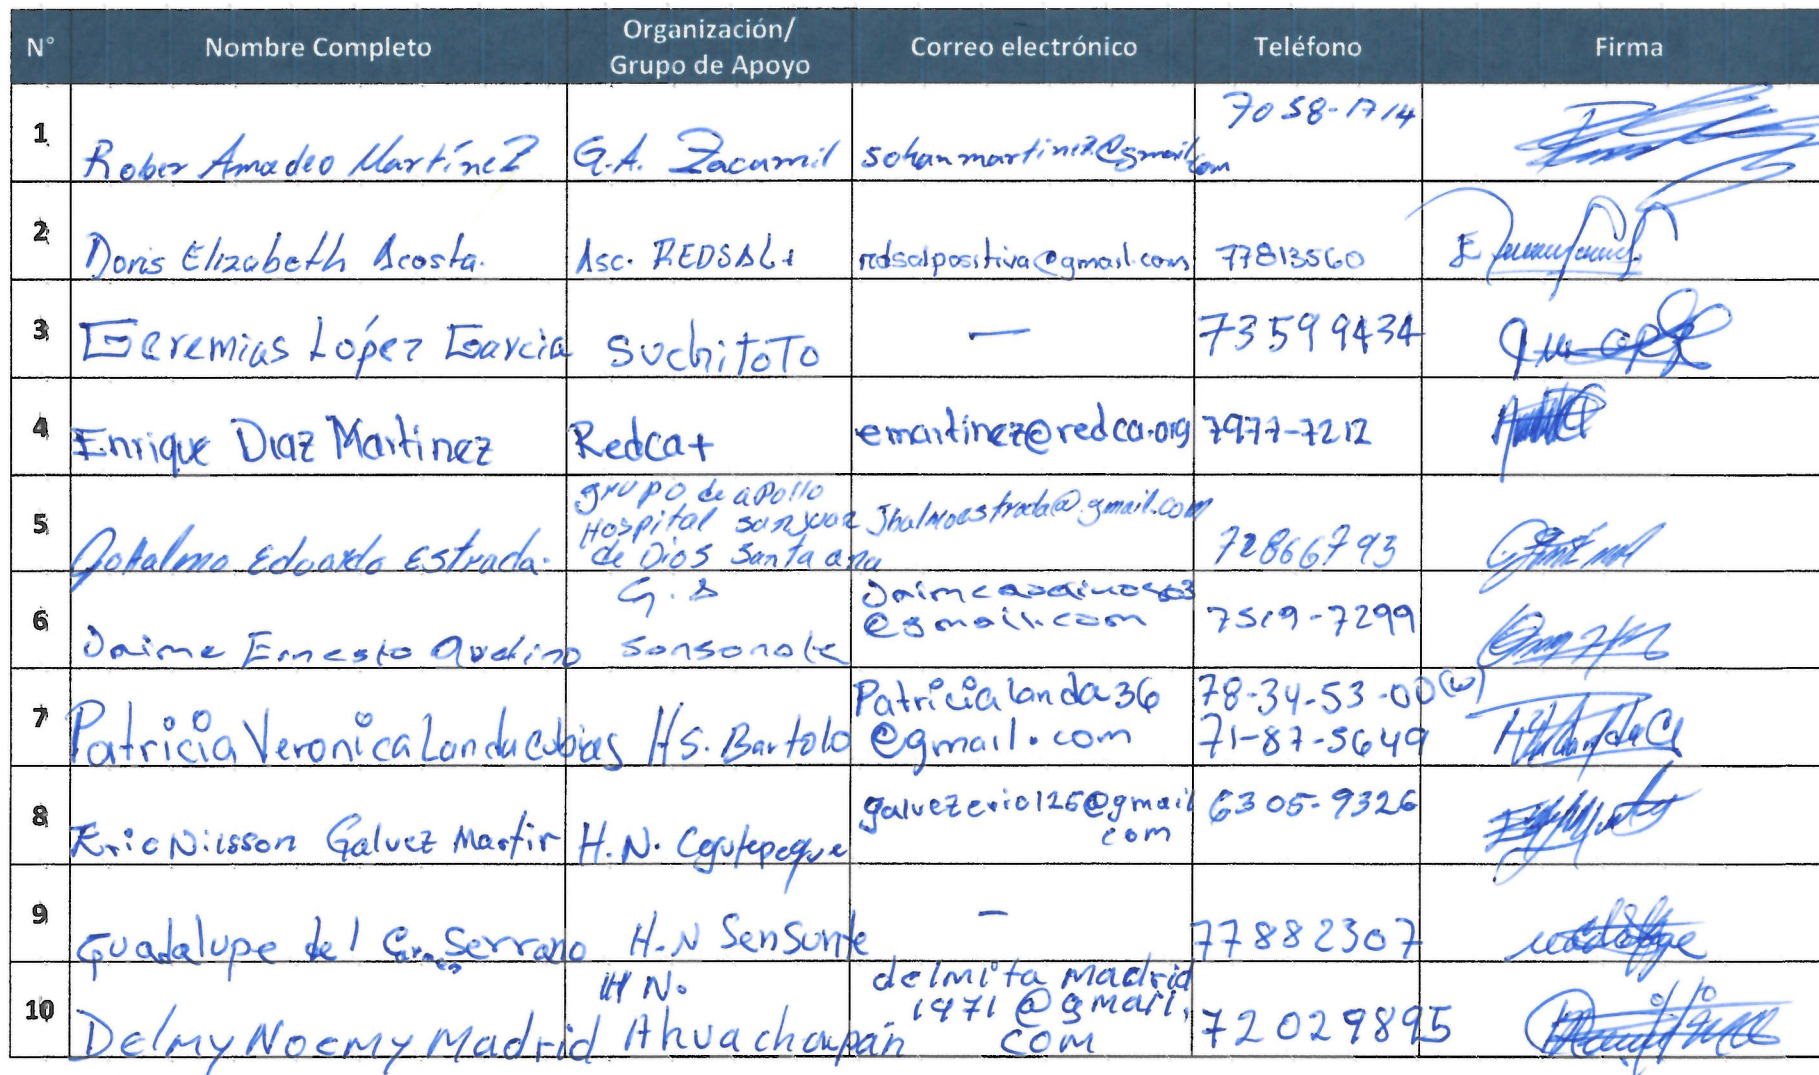 N° Nombre Completo Organización/ Grupo de Apoyo Correo electrónico Teléfono Firma
1 Rober Amadeo Martínez G.A. Zacamil sohanmartinez@gmail.com 7058-1714
2 Doris Elizabeth Acosta. Asc. REDSAL+ redsalpositiva@gmail.com 77813560
3 Geremias López Garcia SuchitoTo — 73599434
4 Enrique Diaz Martinez Redca+ emartinez@redca.org 7977-7212
5 Eduardo Estrada. grupo de apollo Hospital san juan de Dios Santa ana Jhalmoestrada@gmail.com 72866793
6 Jaime Ernesto Avelino G.A Sonsonate @gmail.com 7519-7299
7 Patricia Veronica Landa Cubias H S. Bartolo Patricialanda36 @gmail.com 78-34-53-00(w) 71-87-5649
8 Eric Nilsson Galvez Martir H.N. Cojutepeque galvezeric126@gmail com 6305-9326
9 Guadalupe del Carmen Serrano H.N SenSunte — 77882307
10 Delmy Noemy Madrid H N. Ahuachapán delmita madrid 1971@gmail. com 72029895